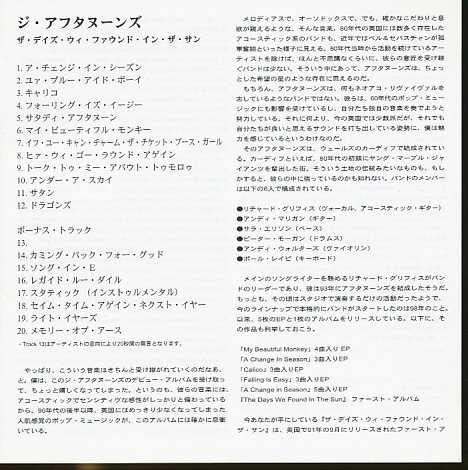 ジ・アフタヌーンズ
ザ・デイズ・ウィ・ファウンド・イン・ザ・サン
1. ア・チェンジ・イン・シーズン
2. ユア・ブルー・アイド・ボーイ
3. キャリコ
4. フォーリング・イズ・イージー
5. サタデイ・アフタヌーン
6. マイ・ビューティフル・モンキー
7. イフ・ユー・キャン・チャーム・ザ・チケット・ブース・ガール
8. ヒァ・ウィ・ゴー・ラウンド・アゲイン
9. トーク・トゥ・ミー・アバウト・トゥモロゥ
10. アンダー・ア・スカイ
11. サタン
12. ドラゴンズ
ボーナス・トラック
13.
14. カミング・バック・フォー・グッド
15. ソング・イン・E
16. レガイド・ルー・ダイル
17. スタティック（インストゥルメンタル）
18. セイム・タイム・アゲイン・ネクスト・イヤー
19. ライト・イヤーズ
20. メモリー・オブ・アース
・Track 13はアーティストの意向により20秒間の無音となります。
やっぱり、こういう音楽はきちんと受け継がれていくのだなあ、
と。僕は、このジ・アフタヌーンズのデビュー・アルバムを受け取っ
て、ちょっと嬉しくなってしまった。というのも、彼らの音楽には、
アコースティックでセンシティヴな感性がしっかりと備わっている
から。90年代の後半以降、英国にはめっきり少なくなってしまった
人肌感覚のポップ・ミュージックが、このアルバムには確かに息衝
いている。
メロディアスで、オーソドックスで、でも、確かなこだわりと意
欲が窺えるような、そんな音楽。80年代の英国には数多く存在した
アコースティック系のバンドも、近年ではベル＆セバスチャンが孤
軍奮闘といった様子に見える。80年代当時から活動を続けているアー
ティストを除けば、ほんと不思議なくらいに、彼らの意匠を受け継
ぐバンドは少ない。そういう中にあって、アフタヌーンズは、ちょっ
とした希望の星のような存在に思えるのだ。
もちろん、アフタヌーンズは、何もネオアコ・リヴァイヴァルを
志しているようなバンドではない。彼らは、60年代のポップ・ミュー
ジックにも影響を受けているし、自分たち独自の音楽を奏でようと
努力している。それに何より、今の英国では少数派だが、それでも
自分たちが良いと思えるサウンドを打ち出している姿勢に、僕は魅
力を感じているというわけなのだ。
そのアフタヌーンズは、ウェールズのカーディフで結成されてい
る。カーディフといえば、80年代の初頭にヤング・マーブル・ジャ
イアンツを輩出した街。そういう土地の伝統みたいなものも、もし
かすると、彼らの中に宿っているのかも知れない。バンドのメンバー
は以下の6人で構成されている。
●リチャード・グリフィス（ヴォーカル、アコースティック・ギター）
●アンディ・マリガン（ギター）
●サラ・エリソン（ベース）
●ピーター・モーガン（ドラムス）
●アンディ・ウォルターズ（ヴァイオリン）
●ポール・レイビ（キーボード）
メインのソングライターを務めるリチャード・グリフィスがバン
ドのリーダーであり、彼は93年にアフタヌーンズを結成したそうだ。
もっとも、その頃はスタジオで演奏するだけの活動だったようで、
今のラインナップで本格的にバンドがスタートしたのは98年のこと。
以来、5枚のEPと1枚のアルバムをリリースしている。以下に、そ
の作品も列挙しておこう。
『My Beautiful Monkey』4曲入り EP
『A Change In Season』3曲入り EP
『Calico』3曲入り EP
『Falling Is Easy』3曲入り EP
『A Change In Season』5曲入り EP
『The Days We Found In The Sun』 ファースト・アルバム
今あなたが手にしている『ザ・デイズ・ウィ・ファウンド・イン・
ザ・サン』は、英国で01年の9月にリリースされたファースト・ア